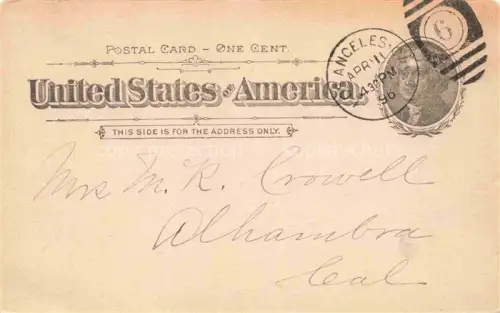 POSTAL CARD - ONE CENT.
United States of America.
THIS SIDE IS FOR THE ADDRESS ONLY.
ANCELES
APR 11
430PM
96
6
Mrs M. R. Crowell
Alhambra
Cal